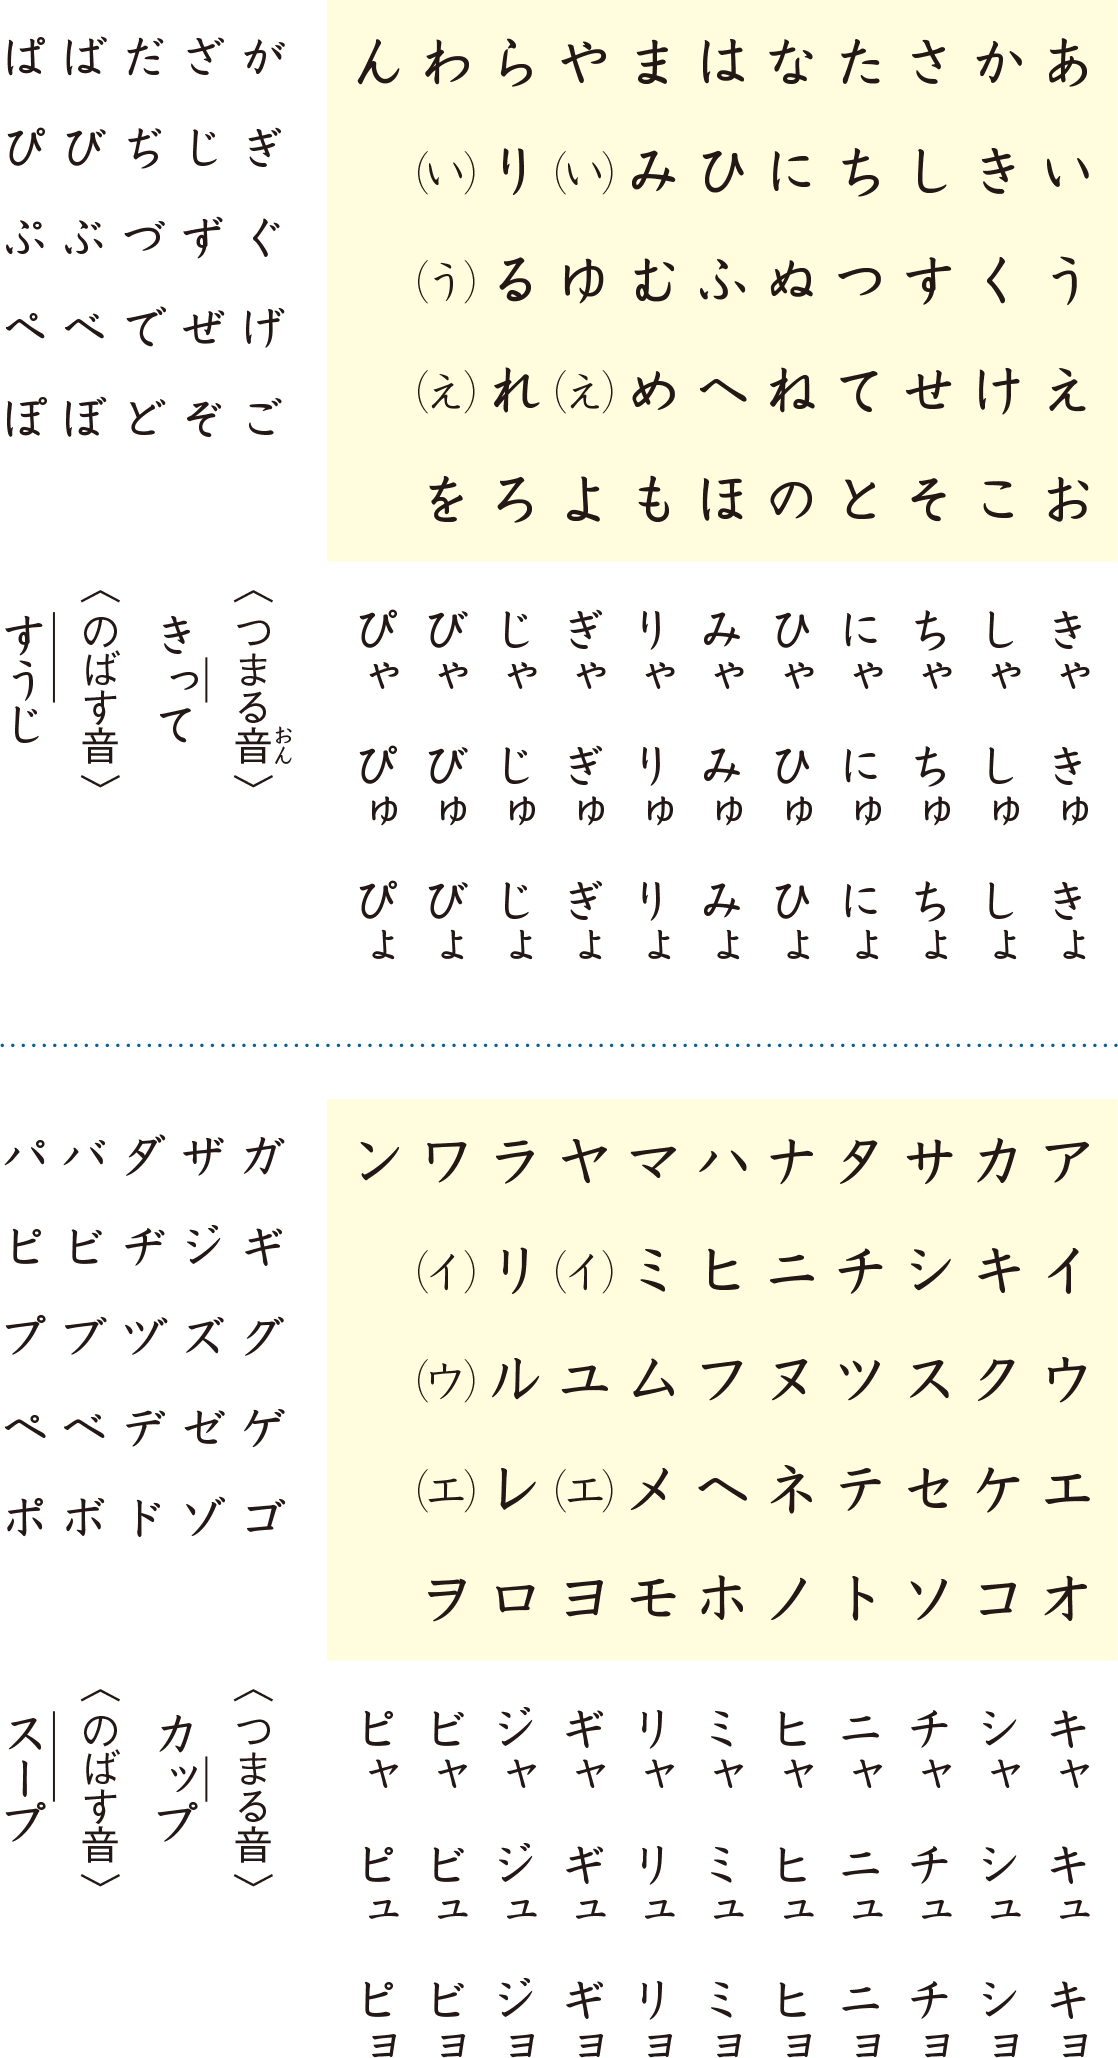 あいうえお
かきくけこ
さしすせそ
たちつてと
なにぬねの
はひふへほ
まみむめも
や（い）ゆ（え）よ
らりるれろ
わ（い）（う）（え）を
ん
がぎぐげご
ざじずぜぞ
だぢづでど
ばびぶべぼ
ぱぴぷぺぽ
きゃきゅきょ
しゃしゅしょ
ちゃちゅちょ
にゃにゅにょ
ひゃひゅひょ
みゃみゅみょ
りゃりゅりょ
ぎゃぎゅぎょ
じゃじゅじょ
びゃびゅびょ
ぴゃぴゅぴょ
〈つまる音〉
おん
きって
〈のばす音〉
すうじ
アイウエオ
カキクケコ
サシスセソ
タチツテト
ナニヌネノ
ハヒフヘホ
マミムメモ
ヤ（イ）ユ（エ）ヨ
ラリルレロ
ワ（イ）（ウ）（エ）ヲ
ン
ガギグゲゴ
ザジズゼゾ
ダヂヅデド
バビブベボ
パピプペポ
キャキュキョ
シャシュショ
チャチュチョ
ニャニュニョ
ヒャヒュヒョ
ミャミュミョ
リャリュリョ
ギャギュギョ
ジャジュジョ
ビャビュビョ
ピャピュピョ
〈つまる音〉
カップ
〈のばす音〉
スープ